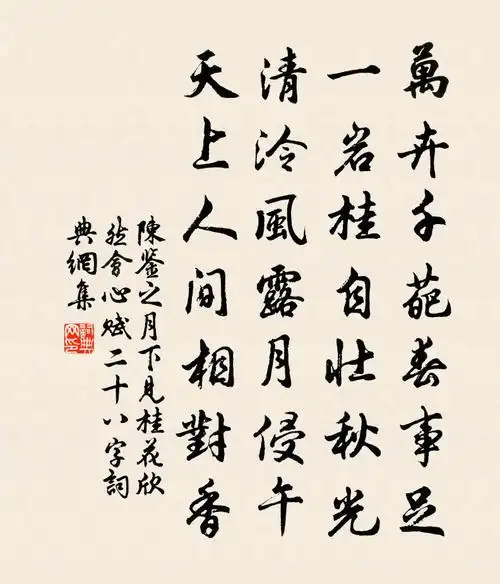 萬卉千葩春事足
一岩桂自壮秋光
清泠風露月侵午
天上人间相對香
陳鉴之月下見桂花欣
然會心赋二十八字詞
典網集